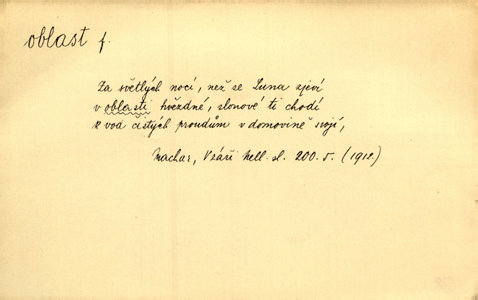 oblast f.
Za světlých nocí, než se Luna zjeví
v oblasti hvězdné, slonové ti chodí
k vod čistých proudům v domovině svojí,
Machar, V záři hell. sl. 200. 5. (1918.)